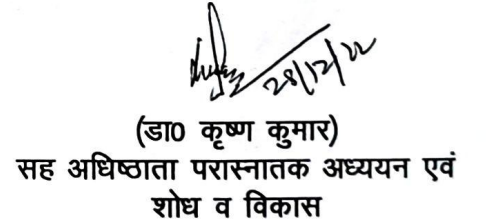 28/12/22
(डा0 कृष्ण कुमार)
सह अधिष्ठाता परास्नातक अध्ययन एवं
शोध व विकास